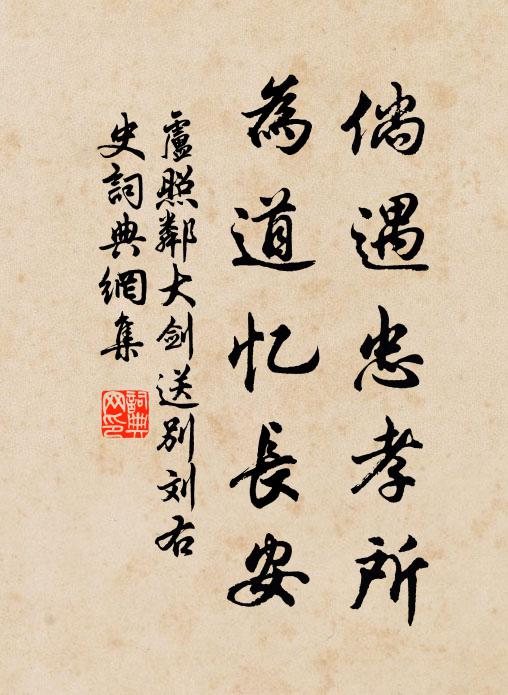 倘遇忠孝所
為道忆長安
盧照鄰大剑送别刘右
史詞典網集
詞典
网印